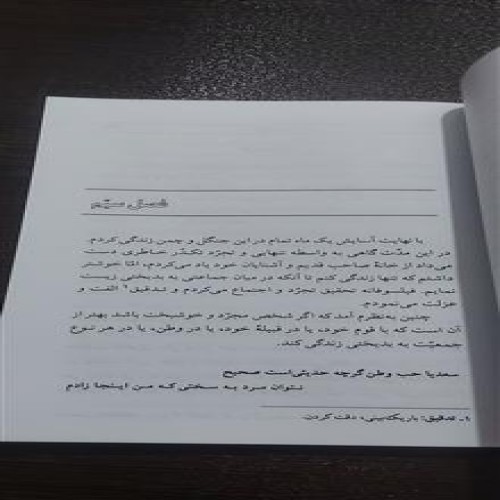 فصل سیّم
با نهایت آسایش یک ماه تمام در این جنگل و چمن زندگی کردم.
در این مدّت گاهی به واسطه تنهایی و تجرّد تکدّر خاطری دست
می‌داد از خانهٔ صاحب قدیم و آشنایان خود یاد می‌کردم، امّا خوشتر
داشتم که تنها زندگی کنم تا آنکه در میان جماعتی به بدبختی زیست
نمایم. فیلسوفانه تحقیق تجرّد و اجتماع می‌کردم و تدقیق۱ الفت و
عزلت می‌نمودم.
چنین به‌نظرم آمد که اگر شخص مجرّد و خوشبخت باشد بهتر از
آن است که با قوم خود، یا در قبیلهٔ خود، یا در وطن، یا در هر نوع
جمعیّت به بدبختی زندگی کند.
سعدیا حب وطن گرچه حدیثی است صحیح
نتوان مرد به سختی که من اینجا زادم
۱ـ تدقیق: باریک‌بینی، دقت کردن.